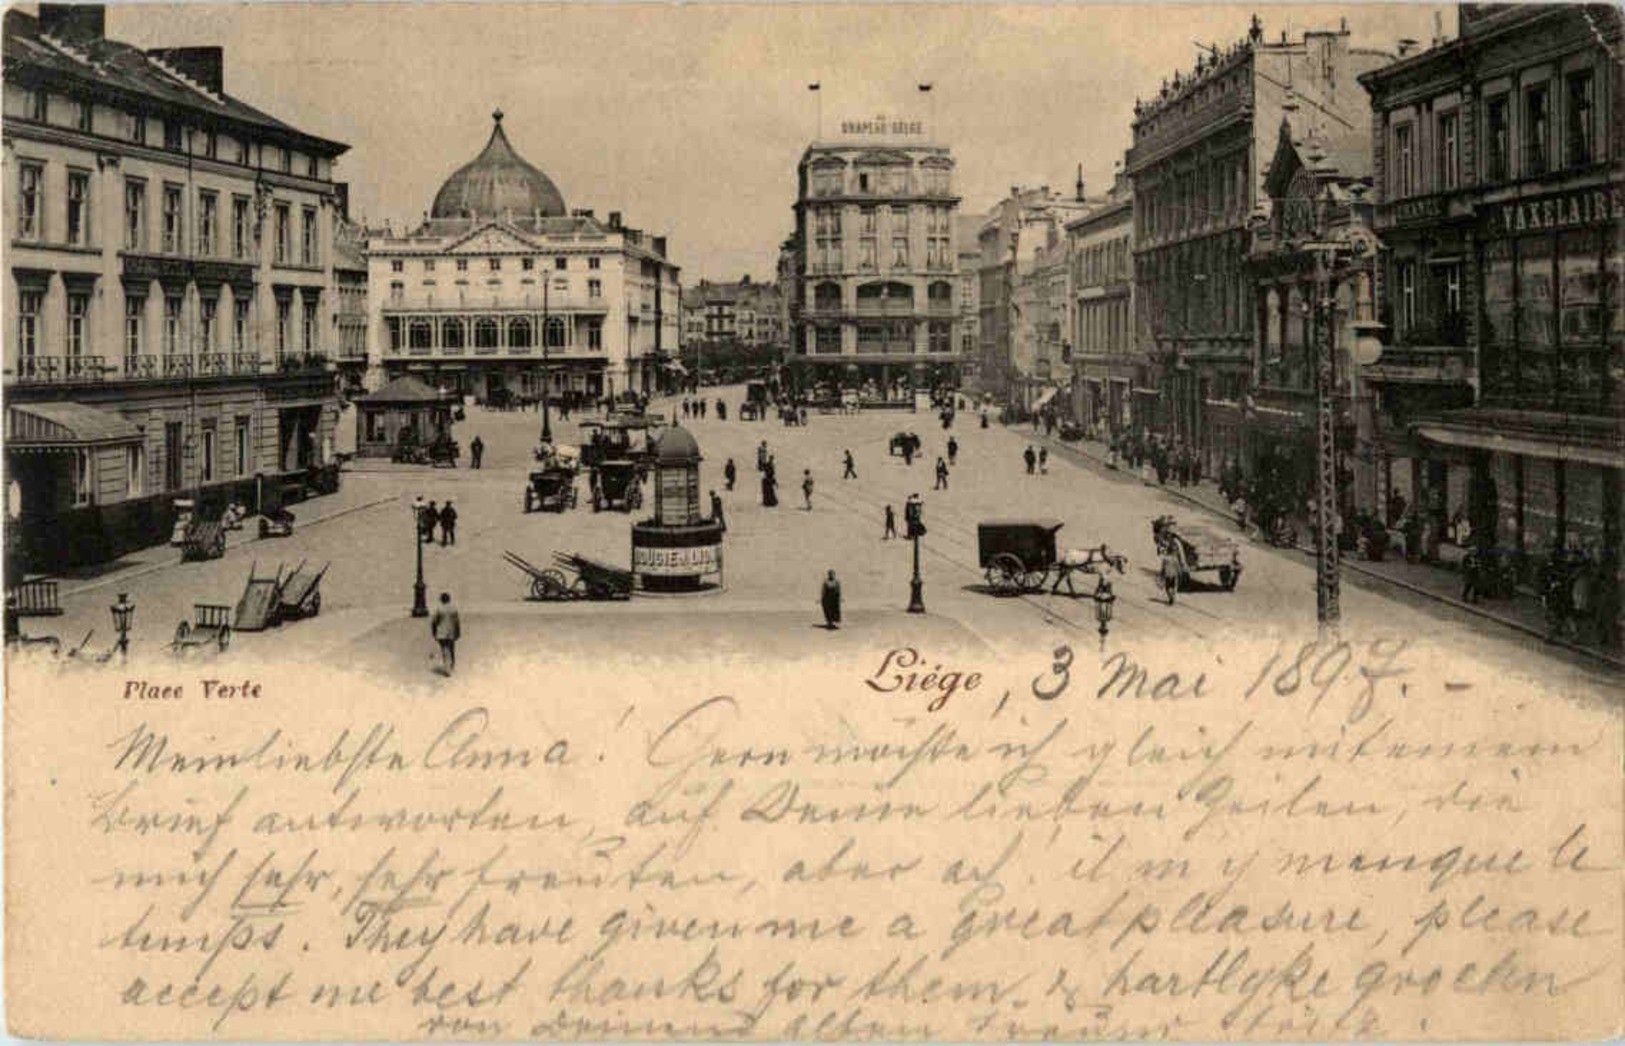 DRAPEAU BELGE
VAXELAIRE
BOUGIE
Place Verte
Liége, 3 Mai 1897. -
Mein liebste Anna! Gern möchte ich gleich mit einem
Brief antworten, auf Deine lieben Zeilen, die
mich sehr, sehr freuten, aber ach! il m'y manque le
temps. They have given me a great pleasure, please
accept me best thanks for them. & hartlyke groeten
von Deinem alten Freund